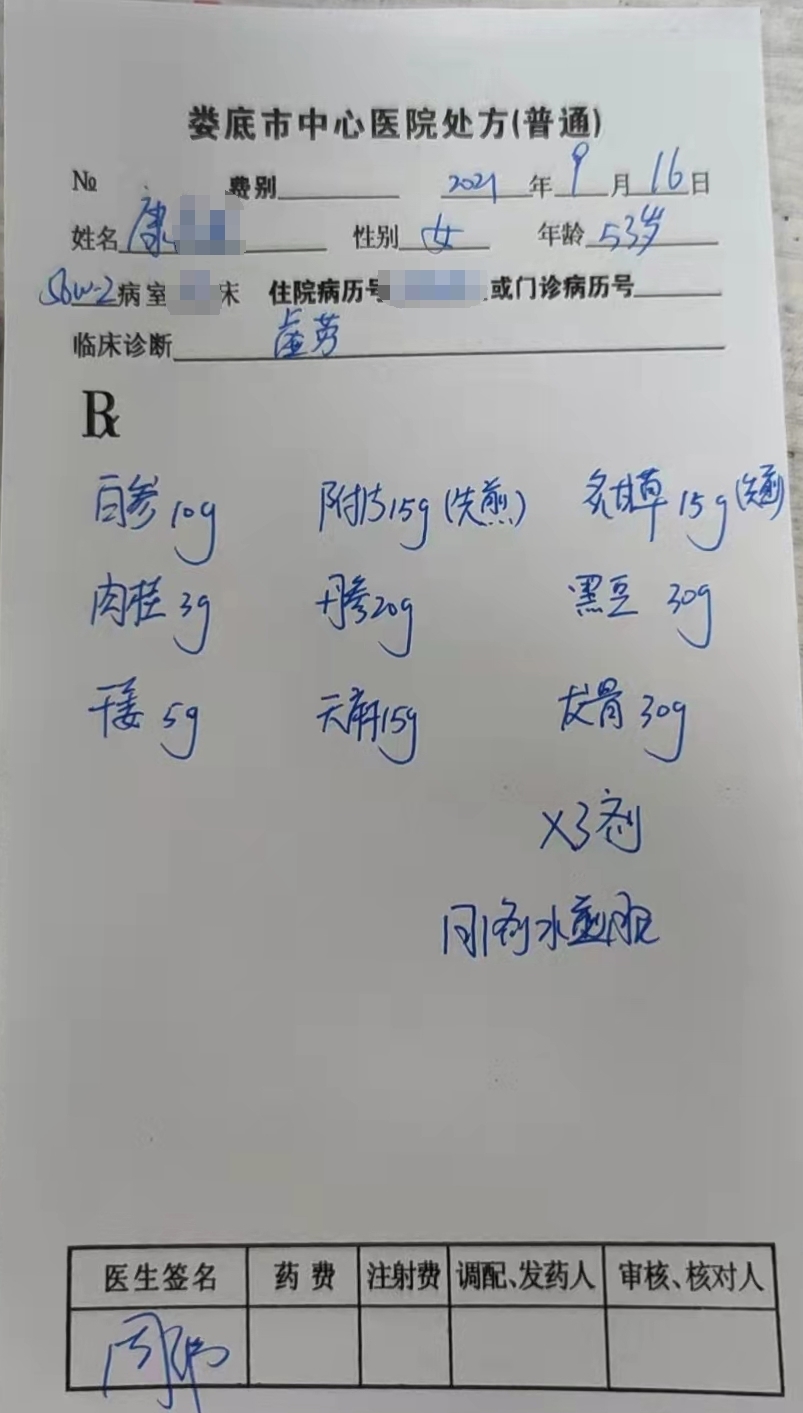 娄底市中心医院处方(普通)
№ 费别 2021年9月16日
姓名 康 性别 女 年龄 53岁
病室 床 住院病历号 或门诊病历号
临床诊断 虚劳
R
白参10g 附片15g(先煎) 炙甘草15g(先煎)
肉桂3g 丹参20g 黑豆30g
干姜5g 天麻15g 龙骨30g
X3剂
日1剂水煎服
医生签名 药费 注射费 调配、发药人 审核、核对人